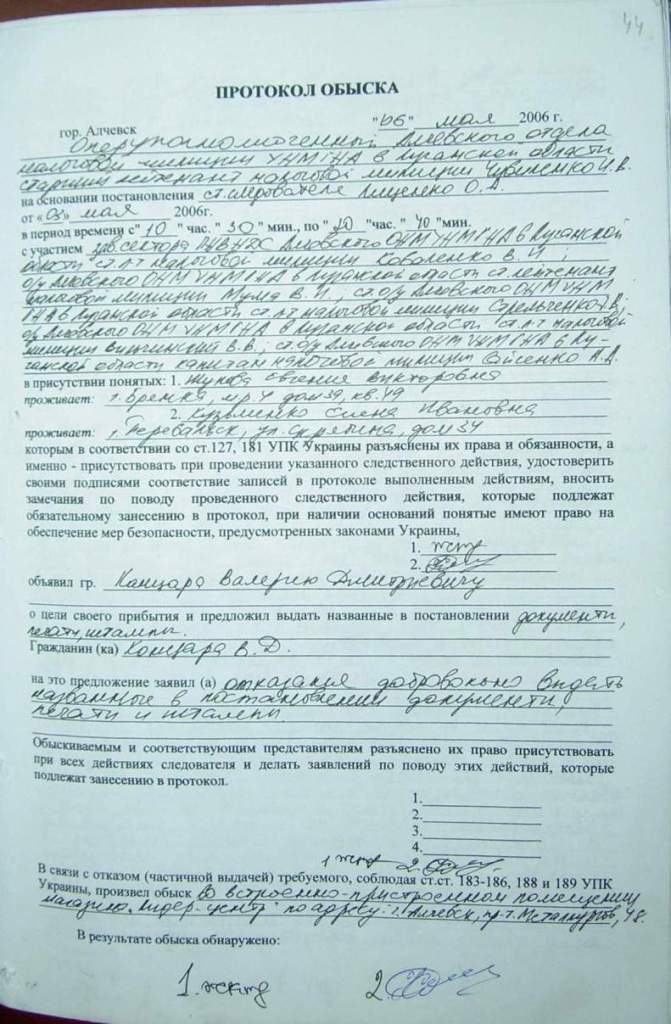 44
ПРОТОКОЛ ОБЫСКА
гор. Алчевск "06" мая 2006 г.
Оперуполномоченный Алчевского отдела
налоговой милиции УНМ ГНА в Луганской области
старший лейтенант налоговой милиции И.В.
на основании постановления ст. следователя О.А.
от «03» мая 2006г.
в период времени с "10" час. "30" мин., по "час. "40" мин.
с участием зав. сектора Алчевского ОНМ УНМ ГНА в Луганской
области ст. л-т налоговой милиции Коваленко В.И.;
о/у Алчевского ОНМ УНМ ГНА в Луганской области ст. лейтенант
налоговой милиции В.И., ст. о/у Алчевского ОНМ УНМ
ГНА в Луганской области ст. л-т налоговой милиции
о/у Алчевского ОНМ УНМ ГНА в Луганской области ст. л-т налоговой
милиции В.В.; ст. о/у Алчевского ОНМ УНМ ГНА в Лу-
ганской области капитан налоговой милиции А.А.
в присутствии понятых: 1. Жукова Евгения Викторовна
проживает: г. Брянка, дом 39, кв. 49
2. Кузьменко Елена Ивановна
проживает: г. Перевальск, ул. дом 34
которым в соответствии со ст.127, 181 УПК Украины разъяснены их права и обязанности, а
именно - присутствовать при проведении указанного следственного действия, удостоверить
своими подписями соответствие записей в протоколе выполненным действиям, вносить
замечания по поводу проведенного следственного действия, которые подлежат
обязательному занесению в протокол, при наличии оснований понятые имеют право на
обеспечение мер безопасности, предусмотренных законами Украины,
1.
2.
объявил гр. Канцара Валерию Дмитриевичу
о цели своего прибытия и предложил выдать названные в постановлении документы,
печати, штампы.
Гражданин (ка) Канцара В.Д.
на это предложение заявил (а) отказался добровольно выдать
названные в постановлении документы,
печати и штампы.
Обыскиваемым и соответствующим представителям разъяснено их право присутствовать
при всех действиях следователя и делать заявлений по поводу этих действий, которые
подлежат занесению в протокол.
1.
2.
3.
4.
1 2.
В связи с отказом (частичной выдачей) требуемого, соблюдая ст.ст. 183-186, 188 и 189 УПК
Украины, произвел обыск во встроенно-пристроенном помещении
магазина "Лидер-центр" по адресу: г. Алчевск, пр-т. Металлургов, 48.
В результате обыска обнаружено:
1. 2.